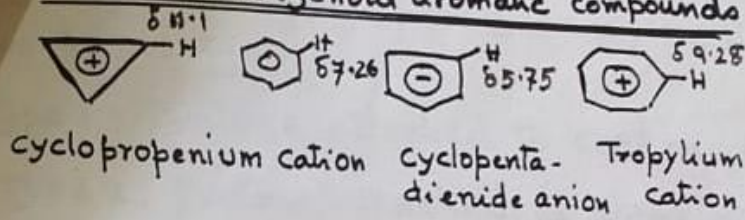 aromatic compounds
δ 11.1
H
H
δ7.26
H
δ5.75
δ 9.28
H
+
-
+
cyclopropenium cation cyclopenta- Tropylium
dienide anion cation